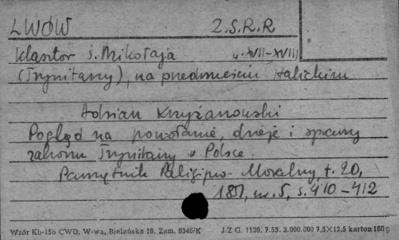 LWÓW Z.S.R.R
klasztor ś. Mikołaja w. XVII-XVIII
(Trynitarzy), na przedmieściu Halickim
Adrian Krzyżanowski
Pogląd na powołanie, dzieje i sprawy
zakonu Trynitarzy w Polsce.
Pamiętnik Religijno-Moralny, t. 20,
1851, nr. 5, s. 410-412
Wzór Kb-15b CWD, W-wa, Bielańska 18, Zam. 8346/K J-Z G. 1130. 7.53. 3.000.000 7,5×12,5 karton 160 g